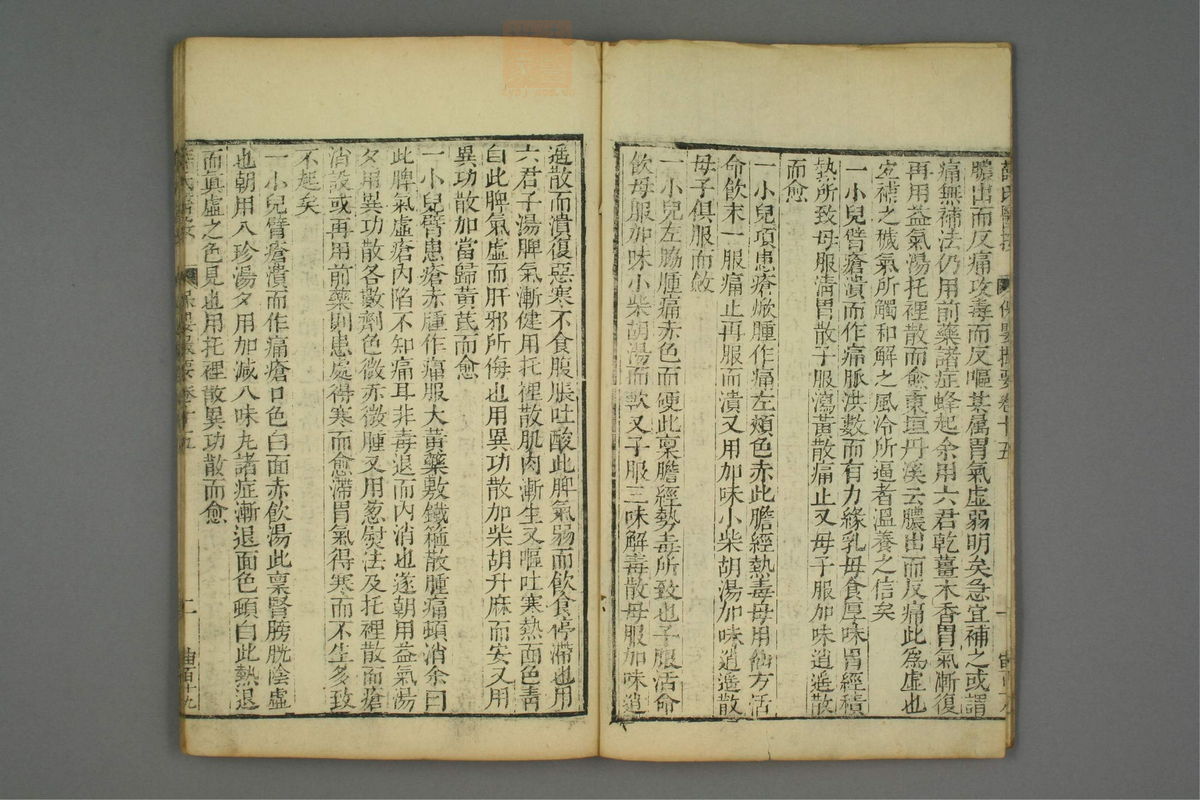 膿出而反痛攻毒而反嘔其屬胃氣虛弱明矣急宜補之或謂
痛無補法仍用前藥諸症蜂起余用六君乾薑木香胃氣漸復
再用益氣湯托裡散而愈東垣丹溪云膿出而反痛此爲虛也
宜補之穢氣所觸和解之風冷所逼者溫養之信矣
一小兒臂瘡潰而作痛脈洪數而有力緣乳母食厚味胃經積
熱所致母服淸胃散子服瀉黃散痛止又母子服加味逍遙散
而愈
一小兒項患瘡焮腫作痛左頰色赤此膽經熱毒母用仙方活
命飲末一服痛止再服而潰又用加味小柴胡湯加味逍遙散
母子俱服而斂
一小兒左脇腫痛赤色而硬此稟膽經熱毒所致也子服活命
飲母服加味小柴胡湯而軟又子服三味解毒散母服加味逍
遙散而潰復惡寒不食腹脹吐酸此脾氣弱而飲食停滯也用
六君子湯脾氣漸健用托裡散肌肉漸生又嘔吐寒熱面色靑
白此脾氣虛而肝邪所侮也用異功散加柴胡升麻而安又用
異功散加當歸黃芪而愈
一小兒臂患瘡赤腫作痛服大黃藥敷鐵箍散腫痛頓消余曰
此脾氣虛瘡內陷不知痛耳非毒退而內消也遂朝用益氣湯
夕用異功散各數劑色微赤微腫又用葱熨法及托裡散而瘡
消設或再用前藥則患處得寒而愈滯胃氣得寒而不生多致
不起矣
一小兒臂瘡潰而作痛瘡口色白面赤飲湯此稟腎膀胱陰虛
也朝用八珍湯夕用加減八味丸諸症漸退面色頓白此熱退
而眞虛之色見也用托裡散異功散而愈
保嬰撮要 卷十五
二